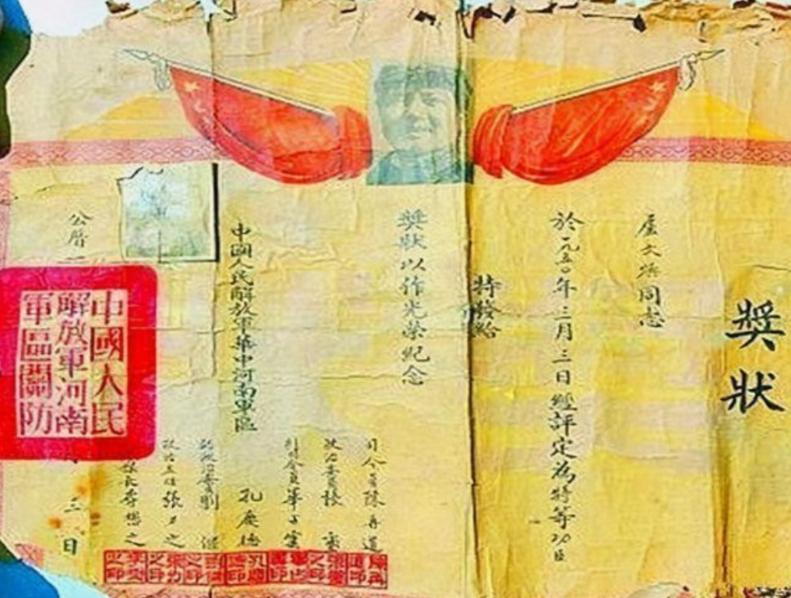 獎狀
同志
於一九五〇年三月三日經評定為特等功臣
特發給
獎狀以作光榮紀念
中國人民解放軍華中河南軍區
司令員陳再道
政治委員張璽
副司令員畢占雲
孔慶德
副政治委員劉
政治主任張力之
參謀長李懋之
公曆一
三日
中國人民
解放軍河南
軍區關防